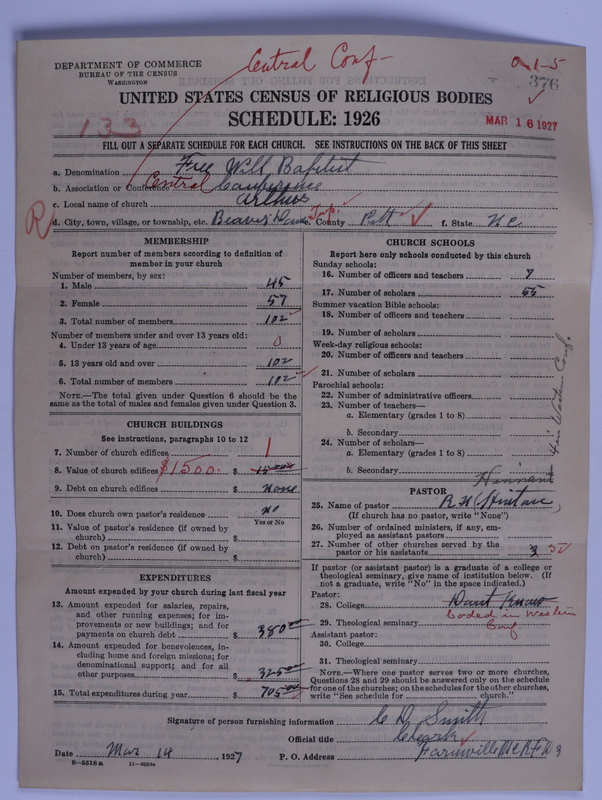 DEPARTMENT OF COMMERCE
BUREAU OF THE CENSUS
WASHINGTON
Central Conf-
1-5
376
UNITED STATES CENSUS OF RELIGIOUS BODIES
SCHEDULE: 1926
133
MAR 16 1927
FILL OUT A SEPARATE SCHEDULE FOR EACH CHURCH. SEE INSTRUCTIONS ON THE BACK OF THIS SHEET
a. Denomination Free Will Baptist
b. Association or Conference Central Conference
c. Local name of church Arthur
R
d. City, town, village, or township, etc. Beaver Dam Twp. e. County Pitt f. State N C
MEMBERSHIP
Report number of members according to definition of member in your church
Number of members, by sex:
1. Male 45
2. Female 57
3. Total number of members 102
Number of members under and over 13 years old:
4. Under 13 years of age 0
5. 13 years old and over 102
6. Total number of members 102
NOTE.—The total given under Question 6 should be the
same as the total of males and females given under Question 3.
CHURCH BUILDINGS
See instructions, paragraphs 10 to 12
7. Number of church edifices 1
8. Value of church edifices $1500. $ 15 00.00
9. Debt on church edifices $ none
10. Does church own pastor's residence no
Yes or No
11. Value of pastor's residence (if owned by
church) $
12. Debt on pastor's residence (if owned by
church) $
EXPENDITURES
Amount expended by your church during last fiscal year
13. Amount expended for salaries, repairs,
and other running expenses; for im-
provements or new buildings; and for
payments on church debt $ 380.00
14. Amount expended for benevolences, in-
cluding home and foreign missions; for
denominational support; and for all
other purposes $ 325.00
15. Total expenditures during year $ 705.00
CHURCH SCHOOLS
Report here only schools conducted by this church
Sunday schools:
16. Number of officers and teachers 7
17. Number of scholars 55
Summer vacation Bible schools:
18. Number of officers and teachers
19. Number of scholars
Week-day religious schools:
20. Number of officers and teachers
21. Number of scholars
Parochial schools:
22. Number of administrative officers
23. Number of teachers—
a. Elementary (grades 1 to 8)
b. Secondary
24. Number of scholars—
a. Elementary (grades 1 to 8)
b. Secondary
in Western Conf.
Hinnant
PASTOR
25. Name of pastor R. H.
(If church has no pastor, write "None")
26. Number of ordained ministers, if any, em-
ployed as assistant pastors
27. Number of other churches served by the
pastor or his assistants 3
If pastor (or assistant pastor) is a graduate of a college or
theological seminary, give name of institution below. (If
not a graduate, write "No" in the space indicated.)
Pastor:
28. College Dont Know
29. Theological seminary Coded in Western Conf
Assistant pastor:
30. College
31. Theological seminary
NOTE.—Where one pastor serves two or more churches,
Questions 28 and 29 should be answered only on the schedule
for one of the churches; on the schedules for the other churches,
write "See schedule for church."
Signature of person furnishing information C D Smith
Official title Clerk
Date Mar 14 1927 P. O. Address Farmville N C R F D
8—5518 a